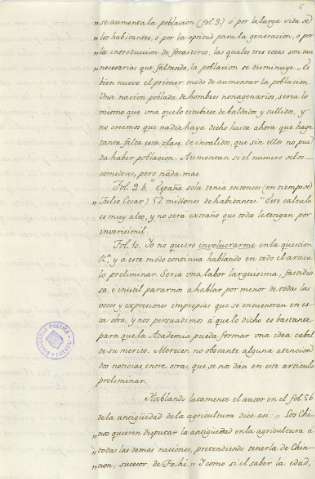 "se aumenta la poblacion (fol. 3) ó por la larga vida de
"los habitantes, ó por la aptitud para la generacion, ó por
"la introduccion de forasteros, las quales tres cosas son tan
"necesarias que faltando, la poblacion se disminuye.
bien nuevo el primer modo de aumentar la poblacion
Una nacion poblada de hombres nonagenarios, seria lo
mismo que una que lo estubiese de baldados y tullidos, y
no creemos que nadie haya dicho hasta ahora que haga
tanta falta esta clase de invalidos, que sin ellos no pue
da haber poblacion. Aumentan si el numero de los
consumidores, pero nada mas.
Fol. 26. España sola tenia entonces (en tiempo de
Julio Cesar) 52 millones de habitantes. Este calculo
es muy alto, y no sera extraño que todos le tengan por
inverosimil.
Fol. 10. Yo no quiero involucrarme en la question
&c. y á este modo continua hablando en todo el articu
lo preliminar. Seria una labor larguisima, fastidio
sa, é inutil pararnos á hablar por menor de todas las
voces y expresiones impropias que se encuentran en es
ta obra, y nos persuadimos á que lo dicho es bastante
para que la Academia pueda formar una idea cabal
de su merito. Merecen no obstante alguna atencion
dos noticias entre otras, que se nos dan en este articulo
preliminar.
Hablando latamente el autor en el fol. 56
de la antigüedad de la agricultura dice así: Los Chi
"nos quieren disputar la antigüedad en la agricultura á
"todas las demas naciones, pretendiendo tenerla de Chin-
"non, sucesor de Fo-hi. Y como si el saber la edad,